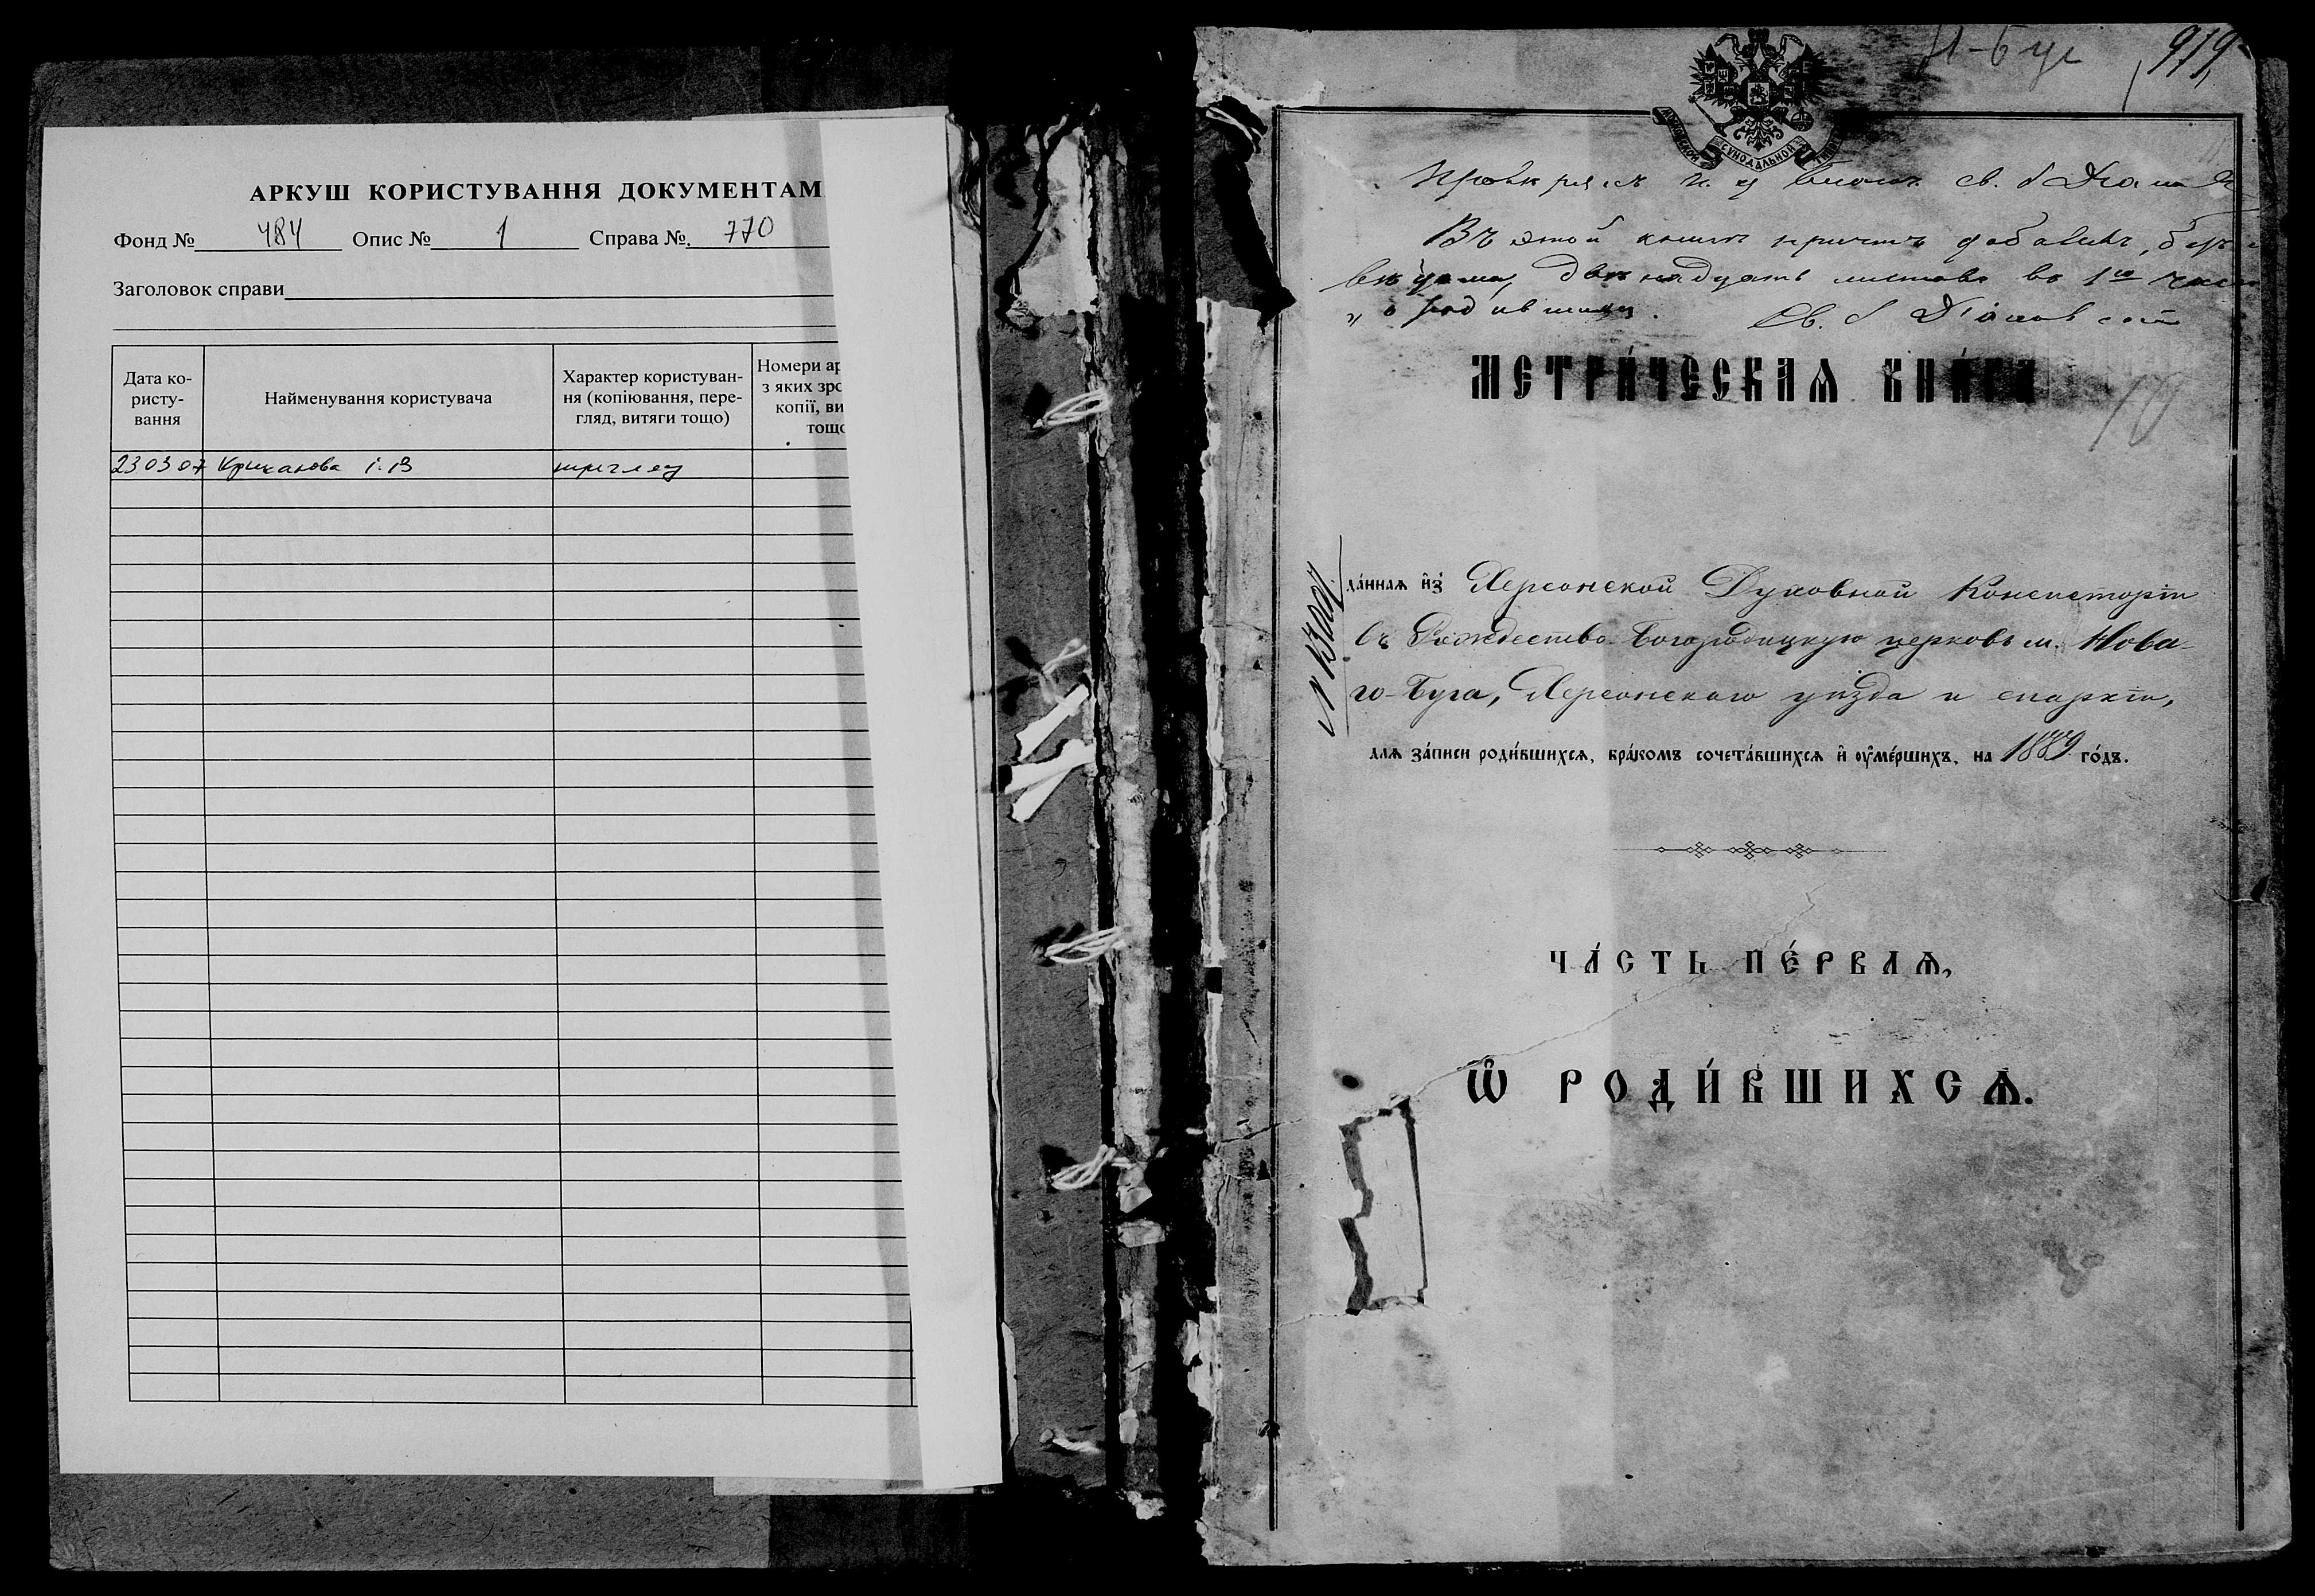 АРКУШ КОРИСТУВАННЯ ДОКУМЕНТАМ
Фонд № 484 Опис № 1 Справа №. 770
Заголовок справи
Дата ко-
ристу-
вання
Найменування користувача
Характер користуван-
ня (копіювання, пере-
гляд, витяги тощо)
Номери ар
з яких зро
копії, ви
тощо
23 03 07
Н-Буг
979
СѴНОДАЛЬНОЙ
Въ этой книге причтъ добавилъ,
двенадцать листовъ въ 1ю
о родившихся.
МЕТРИ́ЧЕСКАѦ КНИ́ГА
да́ннаѧ и҆зъ Херсонской Духовной Консисторіи
въ Рождество-Богородицкую церковь м. Нова-
го-Буга, Херсонскаго уѣзда и епархіи,
длѧ за́писи роди́вшихсѧ, бра́комъ сочета́вшихсѧ и҆ ᲂу҆ме́ршихъ, на 1889 го́дъ.
ЧА́СТЬ ПЕ́РВАѦ,
Ѡ҆ РОДИ́ВШИХСѦ.